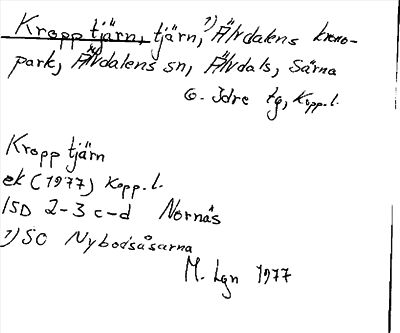 Kropp tjärn, tjärn, 1) Älvdalens krono-
park, Älvdalens sn, Älvdals, Särna
o. Idre tg, Kopp. l.
Kropp tjärn
ek (1977) Kopp. l.
15D 2-3 c-d Nornäs
1) SO Nybodsåsarna
M. Lgn 1977